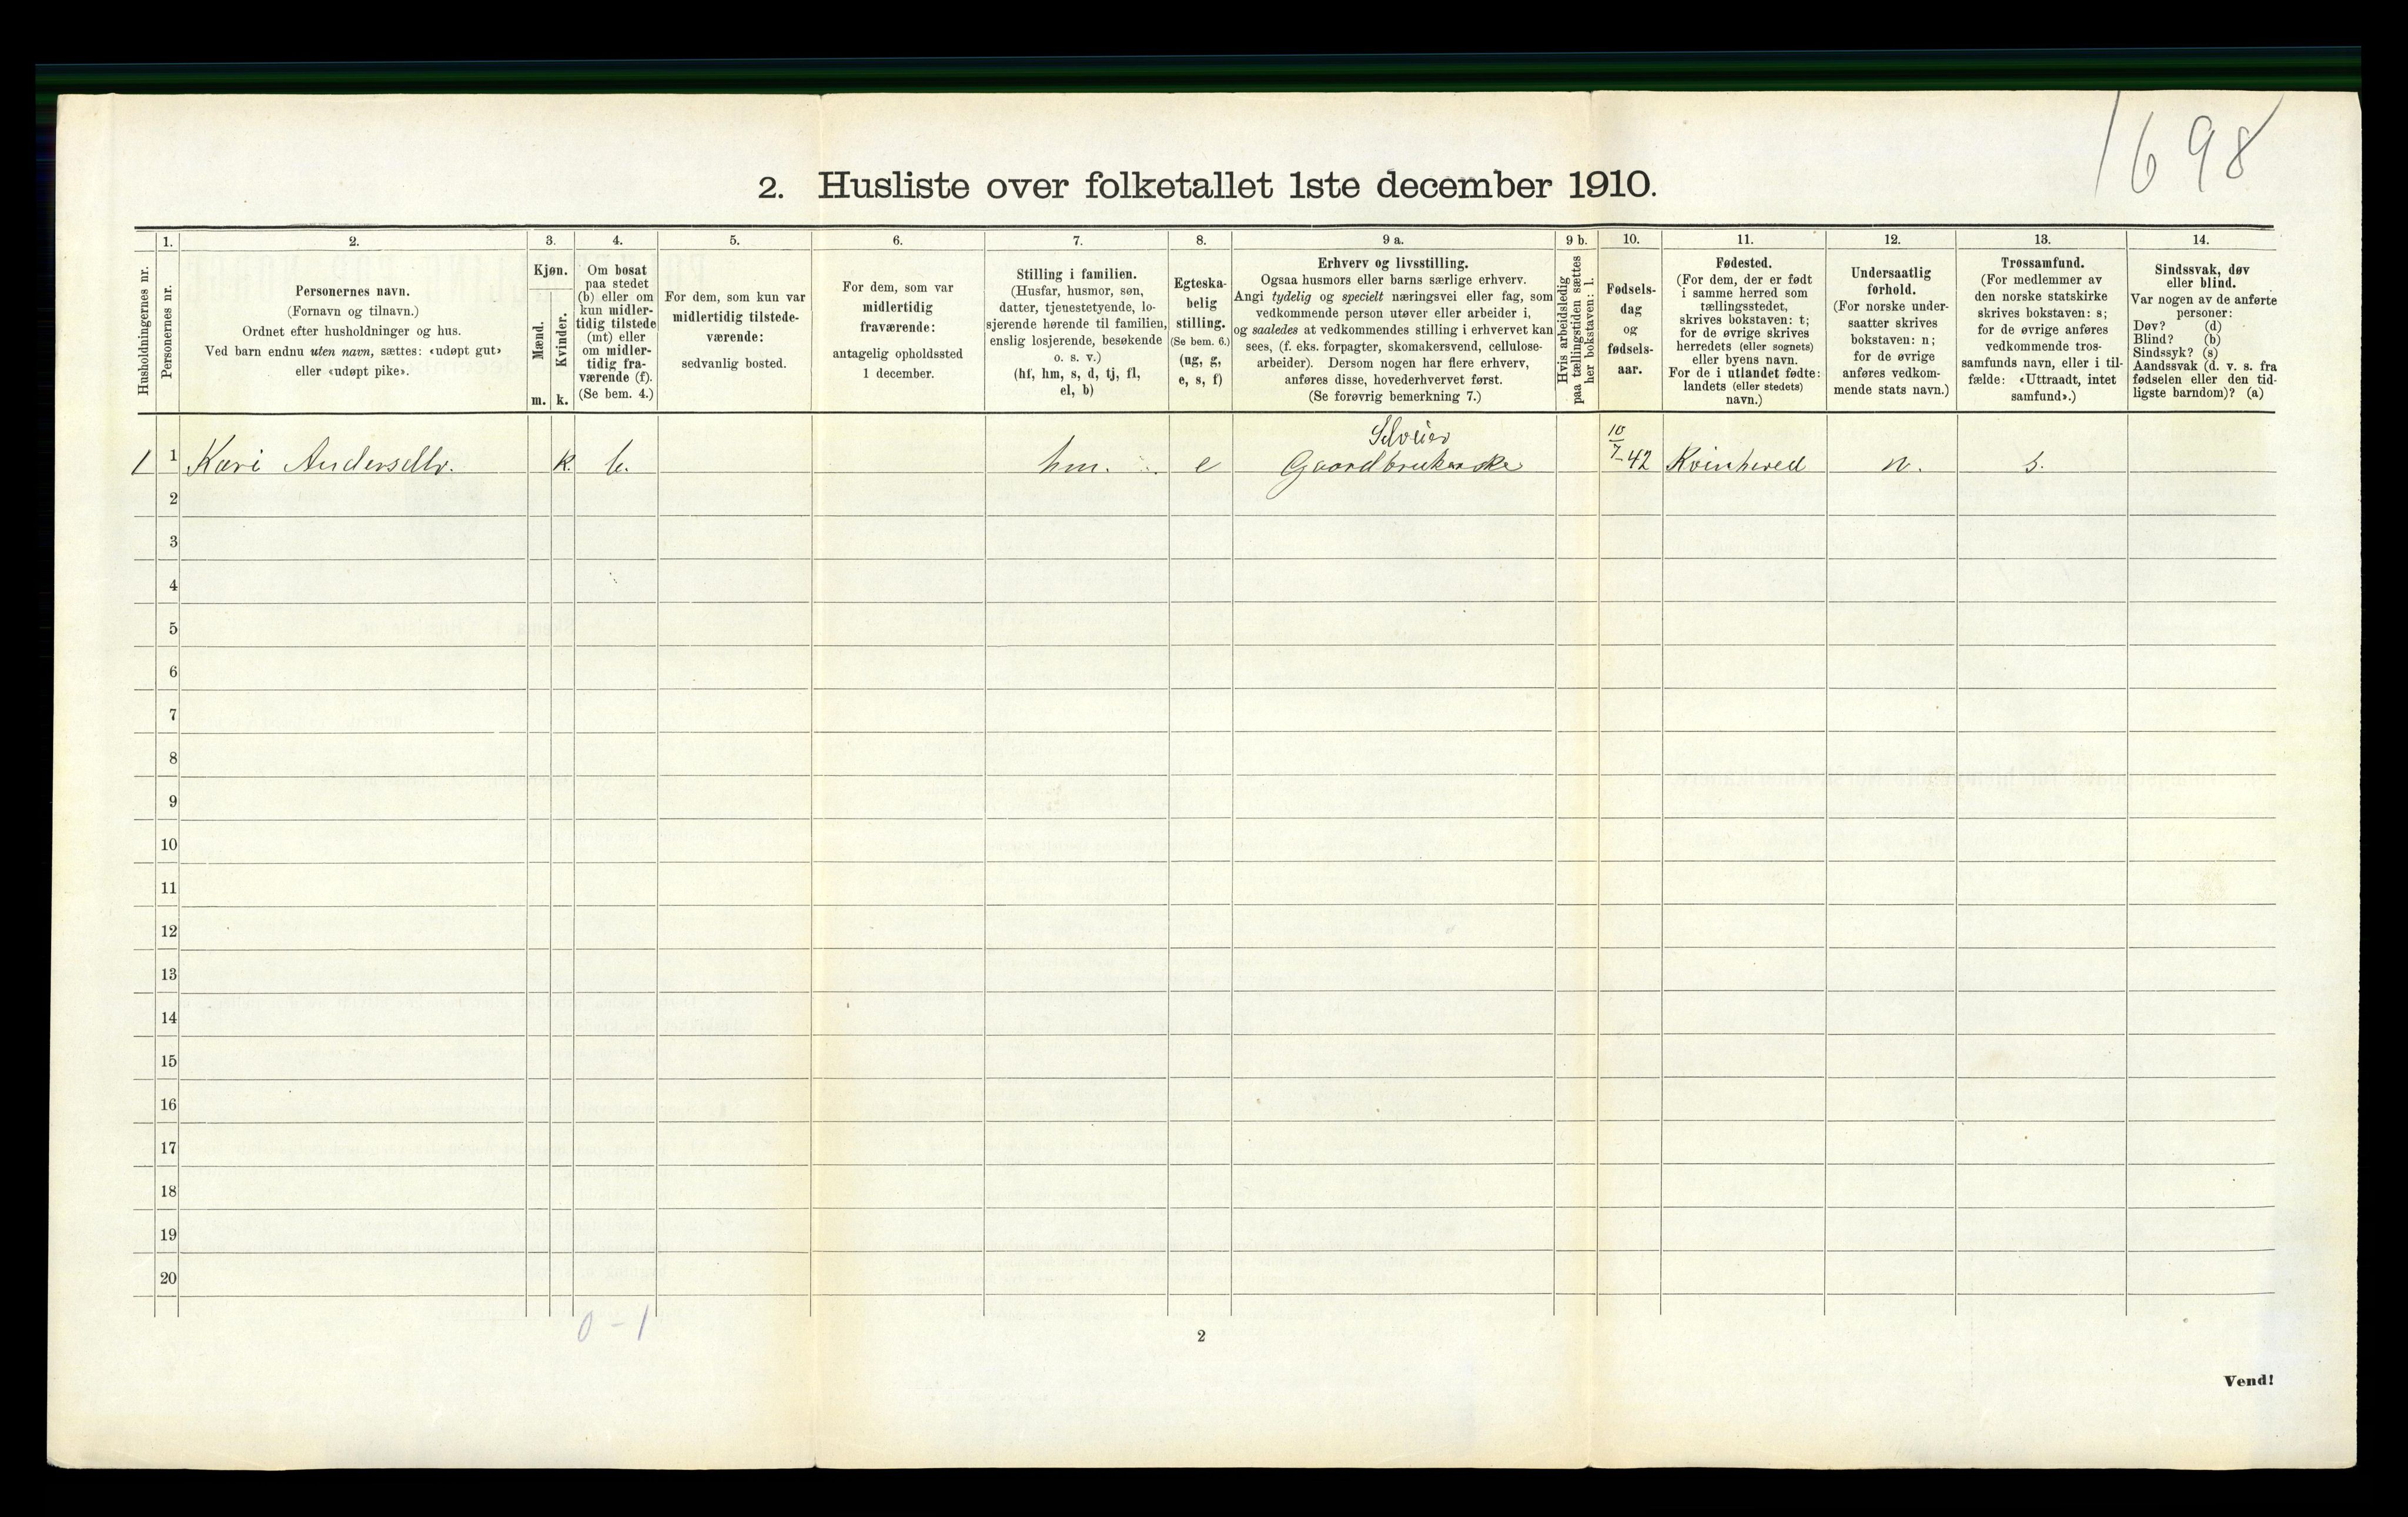 1698
2. Husliste over folketallet 1ste december 1910.
Husholdningernes nr.
1.
Personernes nr.
2.
Personernes navn.
(Fornavn og tilnavn.)
Ordnet efter husholdninger og hus.
Ved barn endnu uten navn, sættes: «udøpt gut»
eller «udøpt pike».
3.
Kjøn.
Mænd.
Kvinder.
m. k.
4.
Om bosat
paa stedet
(b) eller om
kun midler-
tidig tilstede
(mt) eller
om midler-
tidig fra-
værende (f).
(Se bem. 4.)
5.
For dem, som kun var
midlertidig tilstede-
værende:
sedvanlig bosted.
6.
For dem, som var
midlertidig
fraværende:
antagelig opholdssted
1 december.
7.
Stilling i familien.
(Husfar, husmor, søn,
datter, tjenestetyende, lo-
sjerende hørende til familien,
enslig losjerende, besøkende
o. s. v.)
(hf, hm, s, d, tj, fl,
el, b)
8.
Egteska-
belig
stilling.
(Se bem. 6.)
(ug, g,
e, s, f)
9 a.
Erhverv og livsstilling.
Ogsaa husmors eller barns særlige erhverv.
Angi tydelig og specielt næringsvei eller fag, som
vedkommende person utøver eller arbeider i,
og saaledes at vedkommendes stilling i erhvervet kan
sees, (f. eks. forpagter, skomakersvend, cellulose-
arbeider). Dersom nogen har flere erhverv,
anføres disse, hovederhvervet først.
(Se forøvrig bemerkning 7.)
9 b.
Hvis arbeidsledig
paa tællingstiden sættes
her bokstaven: l.
10.
Fødsels-
dag
og
fødsels-
aar.
11.
Fødested.
(For dem, der er født
i samme herred som
tællingsstedet,
skrives bokstaven: t;
for de øvrige skrives
herredets (eller sognets)
eller byens navn.
For de i utlandet fødte:
landets (eller stedets)
navn.)
12.
Undersaatlig
forhold.
(For norske under-
saatter skrives
bokstaven: n;
for de øvrige
anføres vedkom-
mende stats navn.)
13.
Trossamfund.
(For medlemmer av
den norske statskirke
skrives bokstaven: s;
for de øvrige anføres
vedkommende tros-
samfunds navn, eller i til-
fælde: «Uttraadt, intet
samfund».)
14.
Sindssvak, døv
eller blind.
Var nogen av de anførte
personer:
Døv? (d)
Blind? (b)
Sindssyk? (s)
Aandssvak (d. v. s. fra
fødselen eller den tid-
ligste barndom)? (a)
Selveier
1 1 Kari Andersdtr. k. b. hm. e Gaardbrukerske 10/7-42 Kvinhered n. s.
2
3
4
5
6
7
8
9
10
11
12
13
14
15
16
17
18
19
20
0-1
2
Vend!